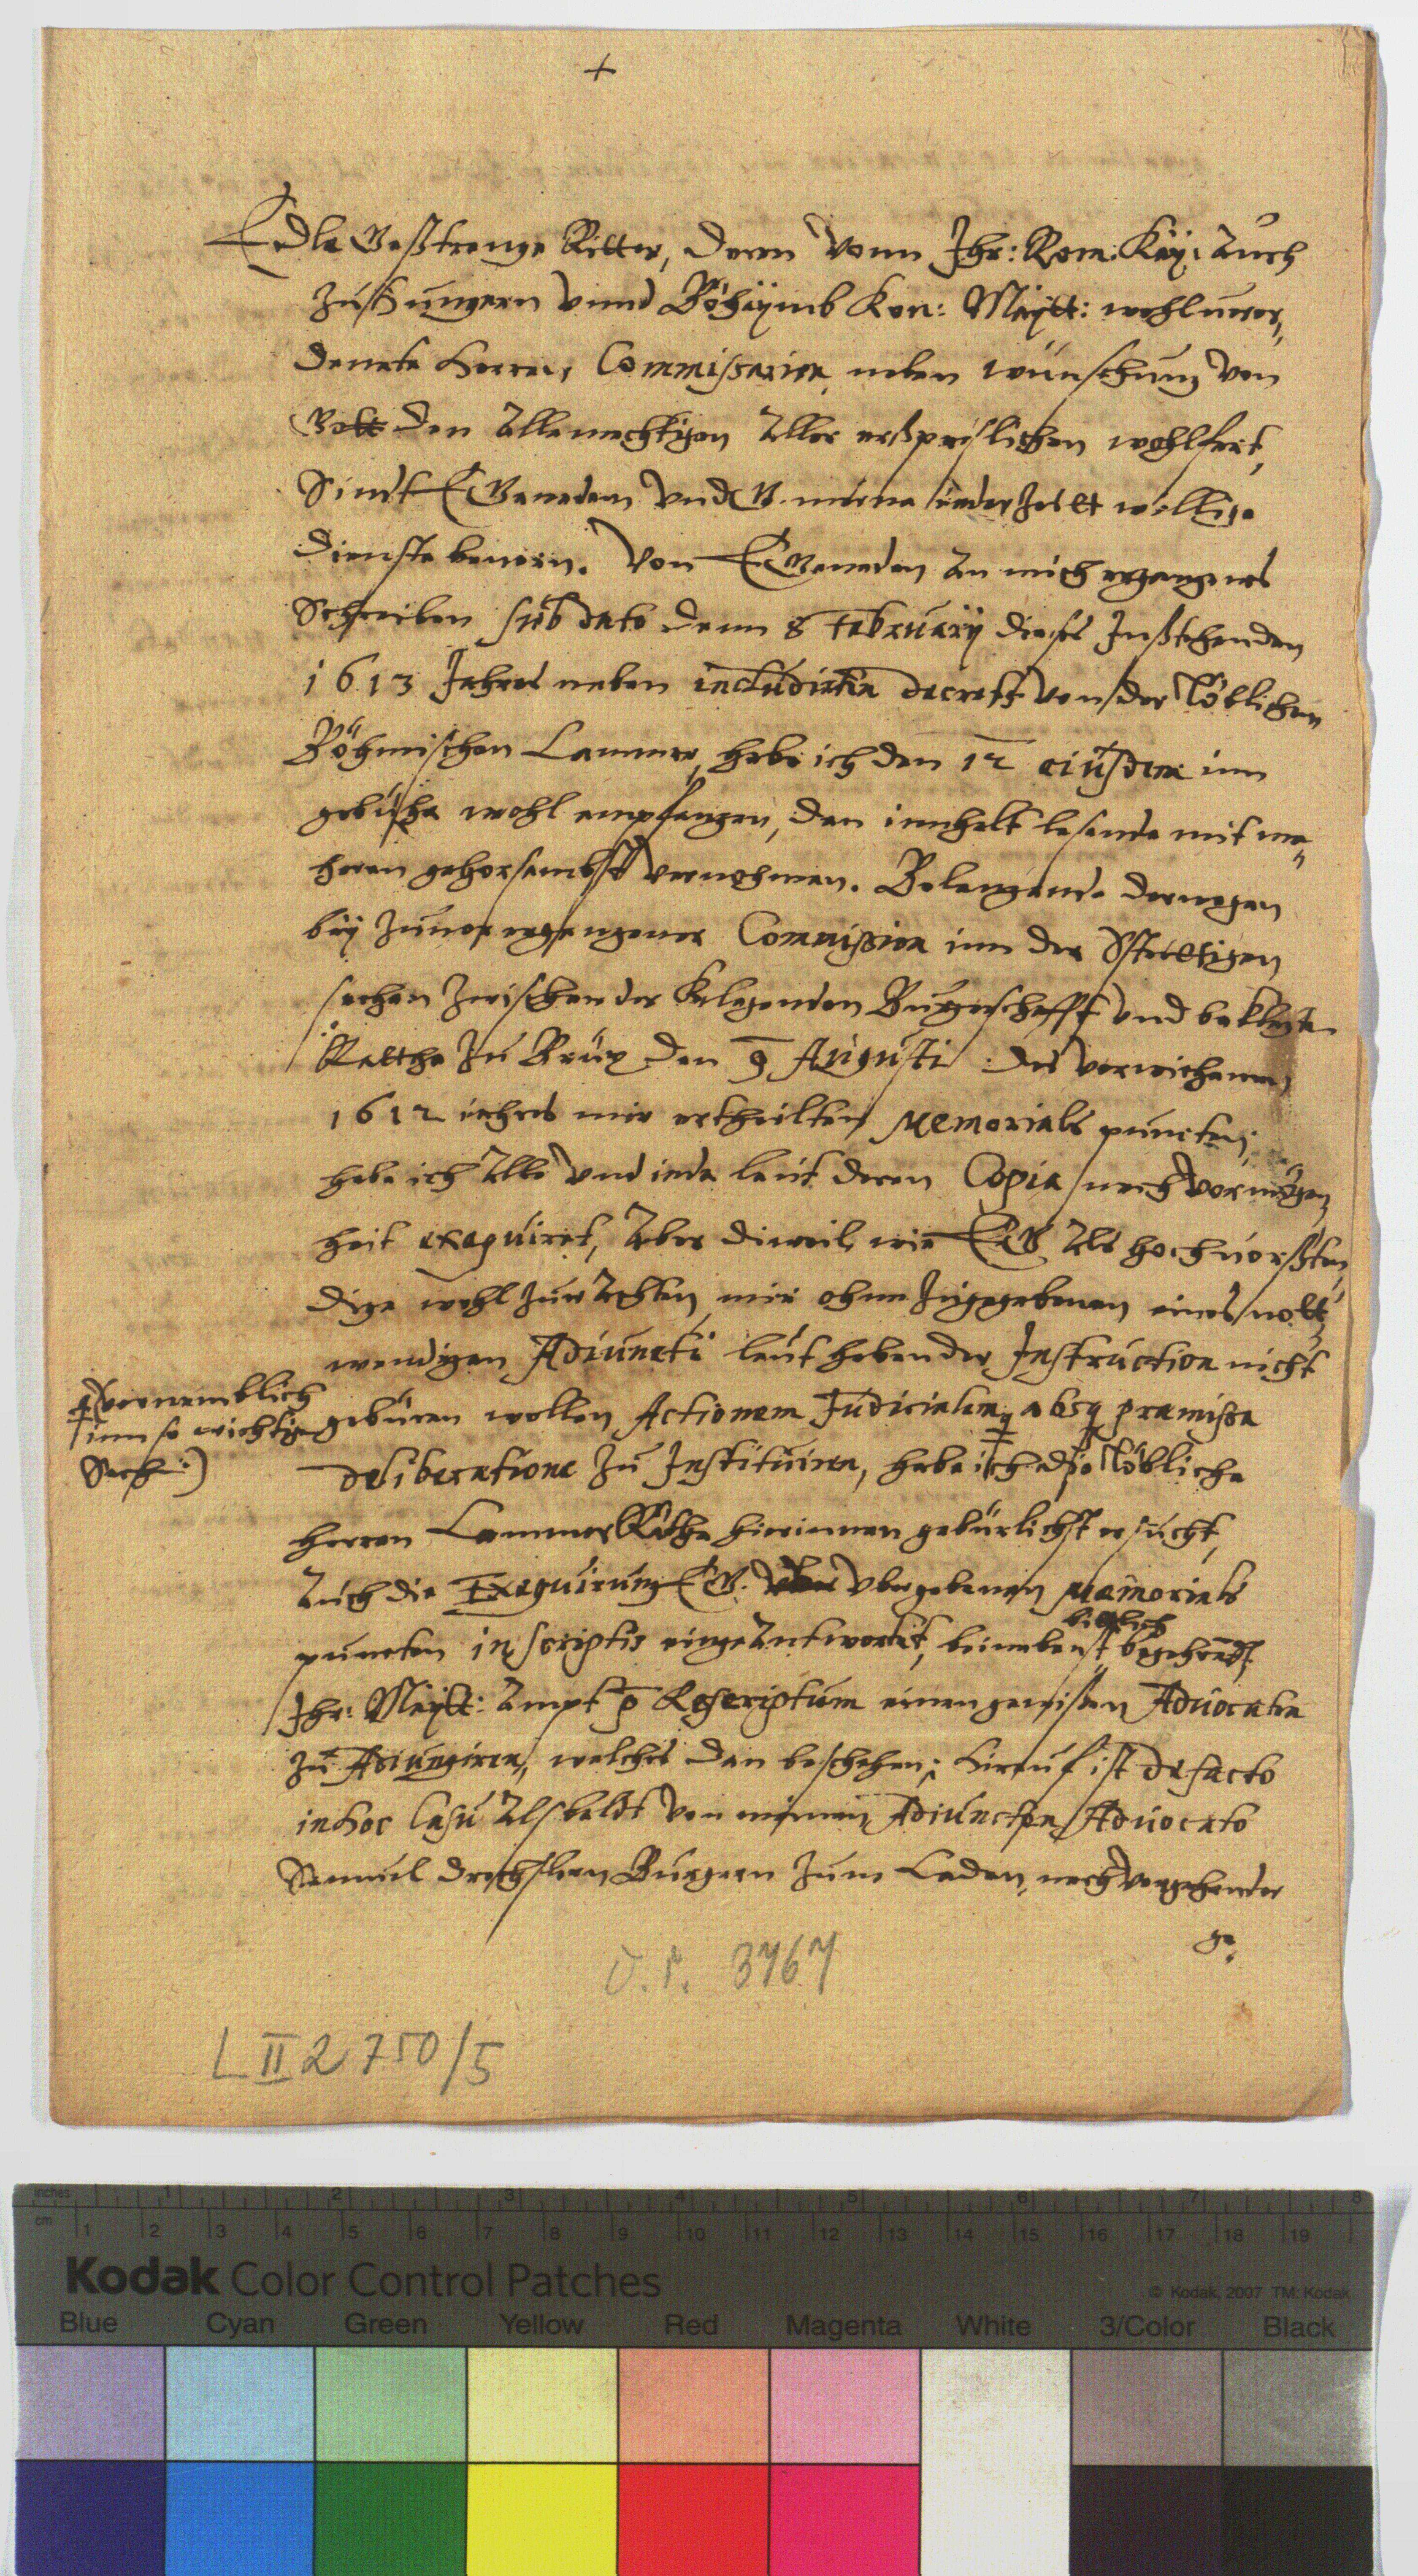 +
Edle Gestrenge Ritter, deren vonn Ihr: Rom: Kay: Auch
Zu Hungern vnnd Böhaymb Kön: Maytt: wohluoror,
denete Herren, Commissarien, neben wünschung von
Gott den Allemechtigen Aller ersprislichen wohlfert,
Sindt E Genaden vnd G. meine iederzeitt willige
dienste beuorn. Von E Genaden An mich ergangenes
Schreiben sub dato denn 8 February dieses Instehenden
1613 Jahres neben includirten decrets von der löblichen
Böhmischen Cammer, habe ich den 12 eiusdem inn
gebühr wohl empfangen, den innhalt lesende mit me„
heren gehorsambst vernohmen. Belangende derwegen
bey zuuor ergangener Commission inn der Streittigen
sachen zwischen der Klagenden Burgerschafft vnd beklagten
Ratthe zu Brüx den 9 Augusti des verwichenen
1612 iahres mir ertheilten Memorials puncten,
habe ich Alle vnd iede laut deren Copia nach vermügen
heit exequiret, Aber dieweil wie E G Als hochuorsten,
dige wohl zuerachten, mir ohne Zugegebenen eines nott„
wendigen Adiuncti laut habender Instruction nicht
vornemblich
inn so wichtige
Sach:)
gebüren wollen Actionem Judicialem absq praemissa
deliberatione zu Instituiren, habe ich die Löbliche
Herren Cammer Räthe hirinnen gebürlichst ersucht,
Auch die Exequirung E G. vbergebenen Memorials
bittlich
puncten in scriptis eingeantwortet, beinebenst begehrendt,
Ihr: Maytt: Ampt p Rescriptum einen gewissen Aduocaten
zu Adiungiren, welches dan beschehen; Hirauf ist de facto
in hoc Casu Alsbaldt von meinem Adiuncten Aduocato
Samuel Drechslern Burgern zum Caden, nach vorgehender
ge„
3767
L II 2 750/5
inches 1 2 3 4 5 6 7 8
cm 1 2 3 4 5 6 7 8 9 10 11 12 13 14 15 16 17 18 19
Kodak Color Control Patches
© Kodak, 2007 TM: Kodak
Blue Cyan Green Yellow Red Magenta White 3/Color Black